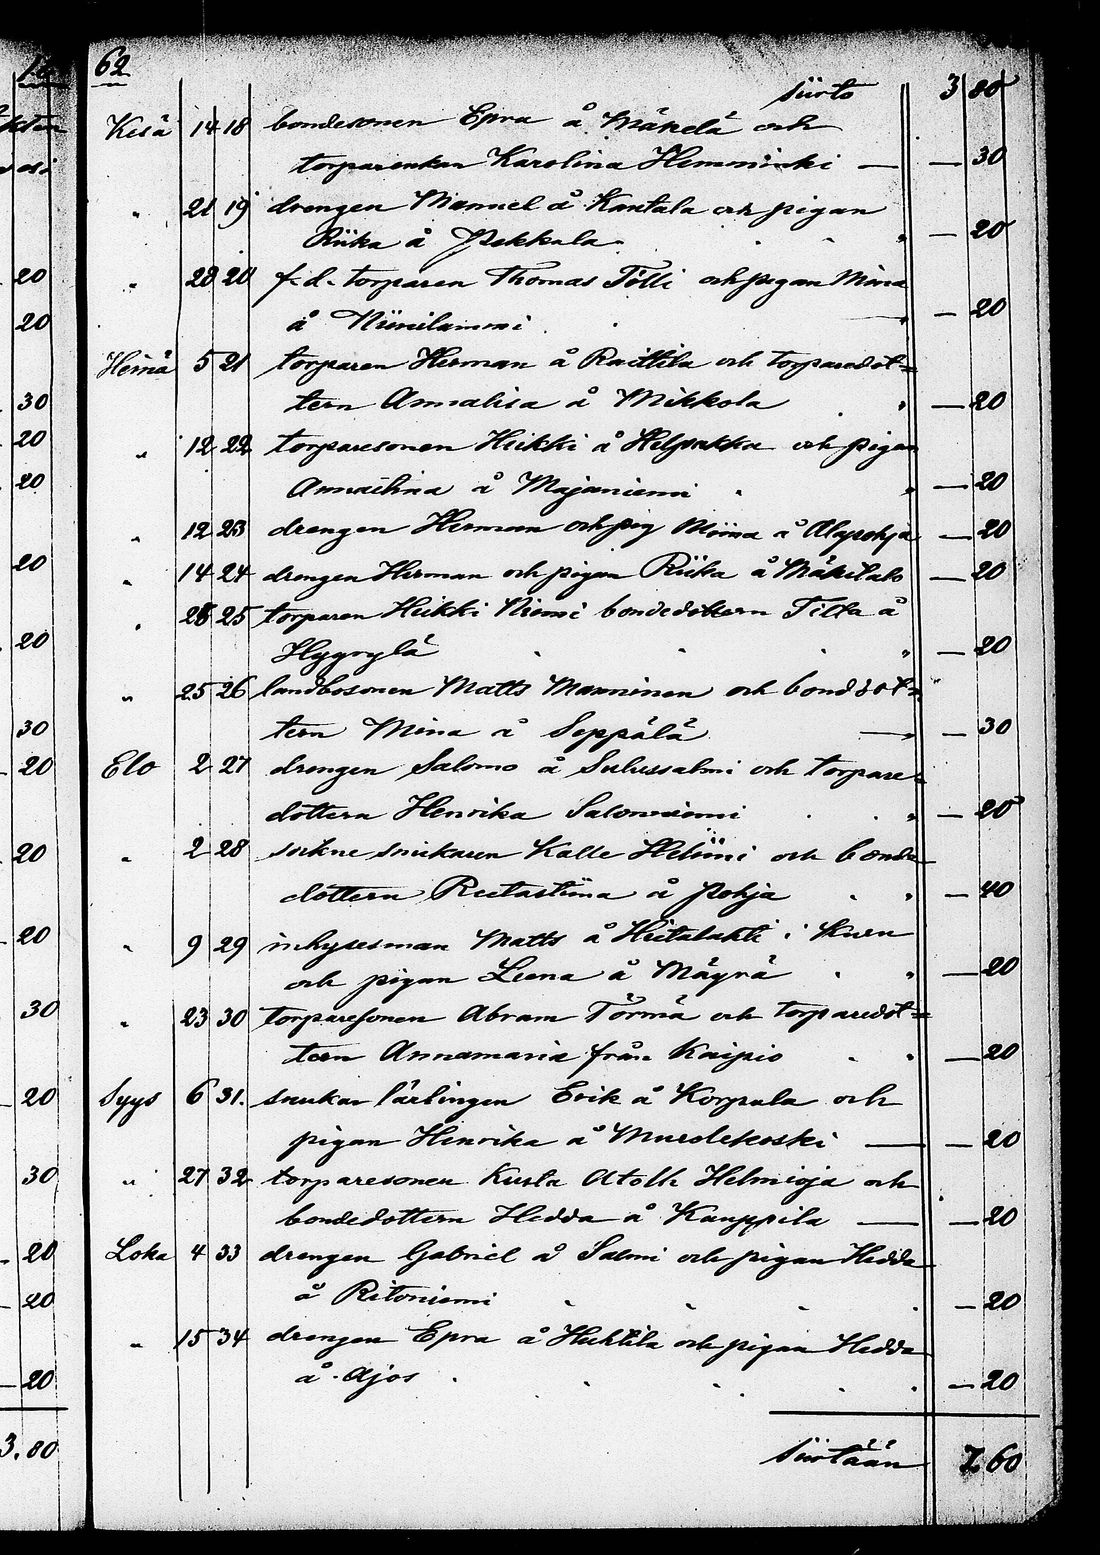 62
siirto 3 80
Kesä 14 18 bondesonen Epra å Mäkelä och
torparenkan Karolina Hemminki — — 30
" 21 19 drengen Manuel å Kantala och pigan
Riika å Pekkala " — 20
" 28 20 f.d. torparen Thomas Tölli och pigan Mina
å Niinilammi — 20
Heinä 5 21 torparen Herman å Raittila och torparedot=
tern Annalisa å Mikkola " — 20
" 12 22 torparesonen Heikki å Helpakka och pigan
Annaelina å Majaniemi " — 20
" 12 23 drengen Herman och pig Miina å Alapohja — 20
" 14 24 drengen Herman och pigan Riika å Mäkitalo — 20
" 28 25 torparen Heikki Niemi bondedottern Tilta å
Hyyrylä " — 20
" 25 26 landbosonen Matts Manninen och bonddot=
tern Mina å Seppälä — — 30
Elo 2 27 drengen Salomo å Sulussalmi och torpare=
dottern Henrika Salonniemi " — 20
" 2 28 sockne snickaren Kalle Heliini och bonde
dottern Reetastiina å Pohja " — 40
" 9 29 inhysesman Matts å Heitalahti i Kuru
och pigan Leena å Mäyrä " — 20
" 23 30 torparesonen Abram Törmä och torparedot=
tern Annamaria från Kaipio " — 20
Syys 6 31. snickar lärlingen Erik å Korpula och
pigan Henrika å Murolekoski — — 20
" 27 32 torparesonen Kusta Atolk Helmioja och
bondedottern Hedda å Kauppila — — 20
Loka 4 33 drengen Gabriel å Salmi och pigan Hedda
å Ritoniemi — 20
" 15 34 drengen Epra å Huhtila och pigan Hedda
å Ajos — 20
siirtään 7 60
20
20
30
20
20
20
20
30
20
20
20
30
20
30
20
20
20
3.80